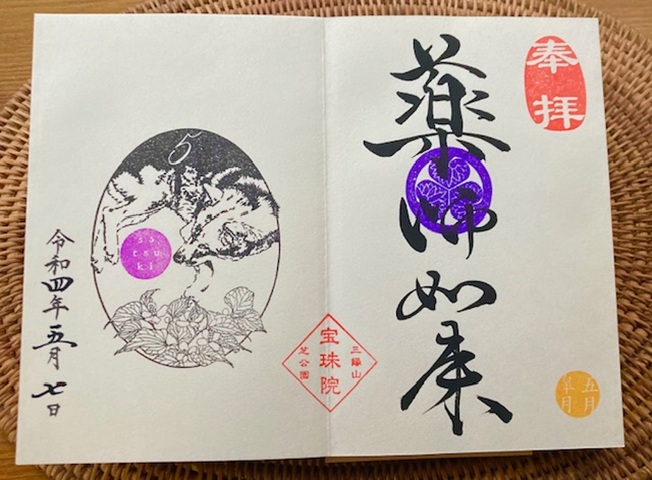 奉拝
薬師如来
五月
皐月
三縁山
宝珠院
芝公園
5
sa
tsu
ki
令和四年五月七日